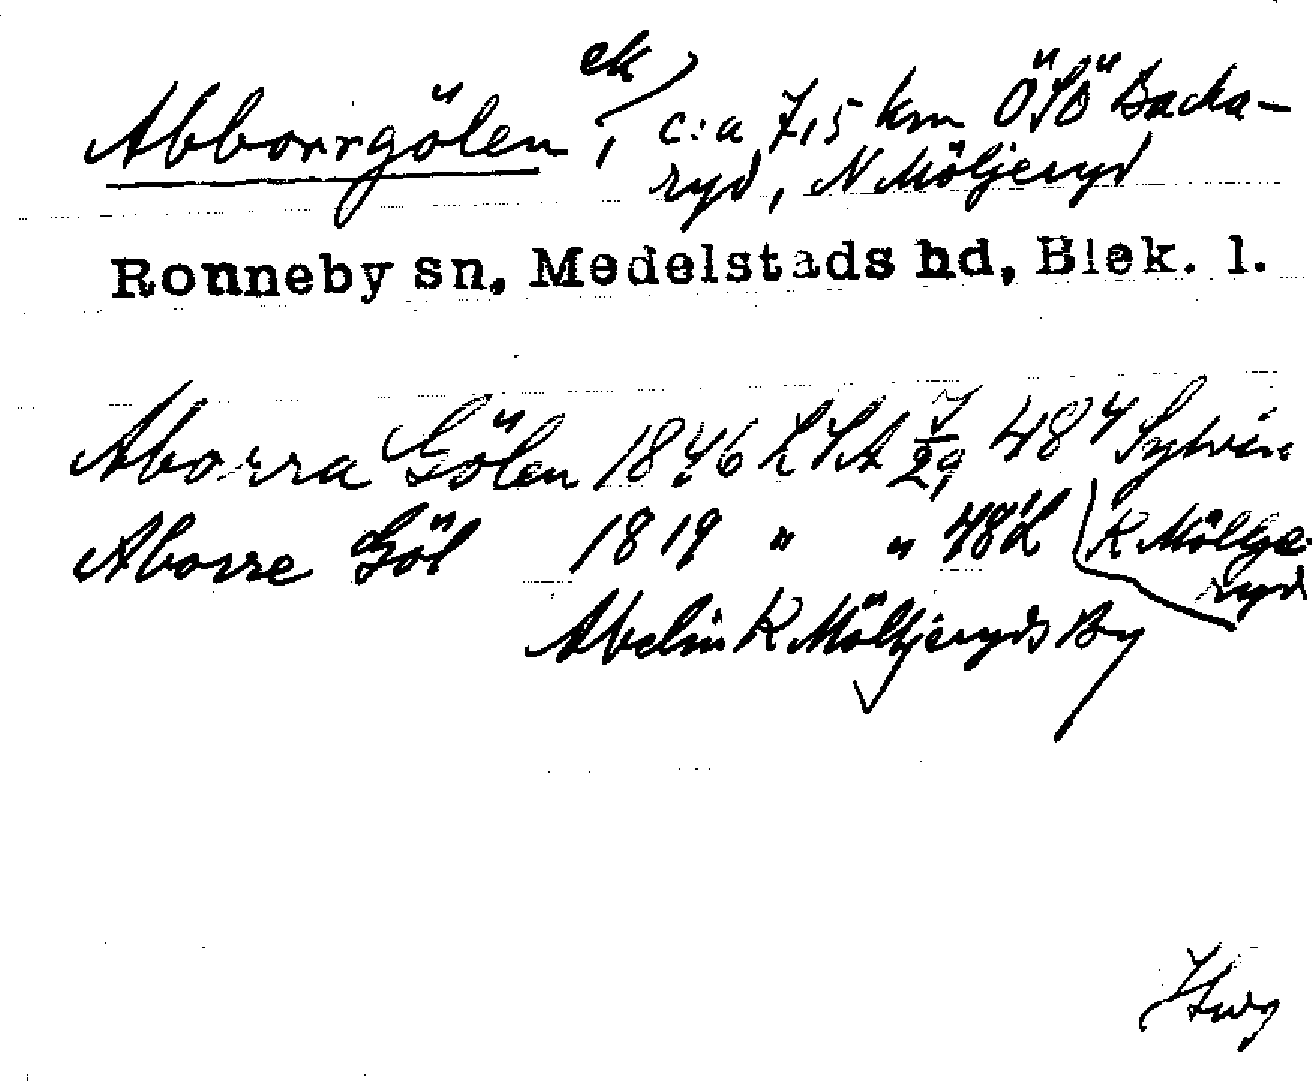 Abborrgölen, ek, c:a 7,5 km ÖSÖ Backa-
ryd, N Möljeryd
Ronneby sn, Medelstads hd, Blek. l.
Aborra Gölen 1846 LSA 7/29 484 Sylvin
Aborre Göl 1819 " " R Mölje-
ryd
Abelin R Mölljeryds By